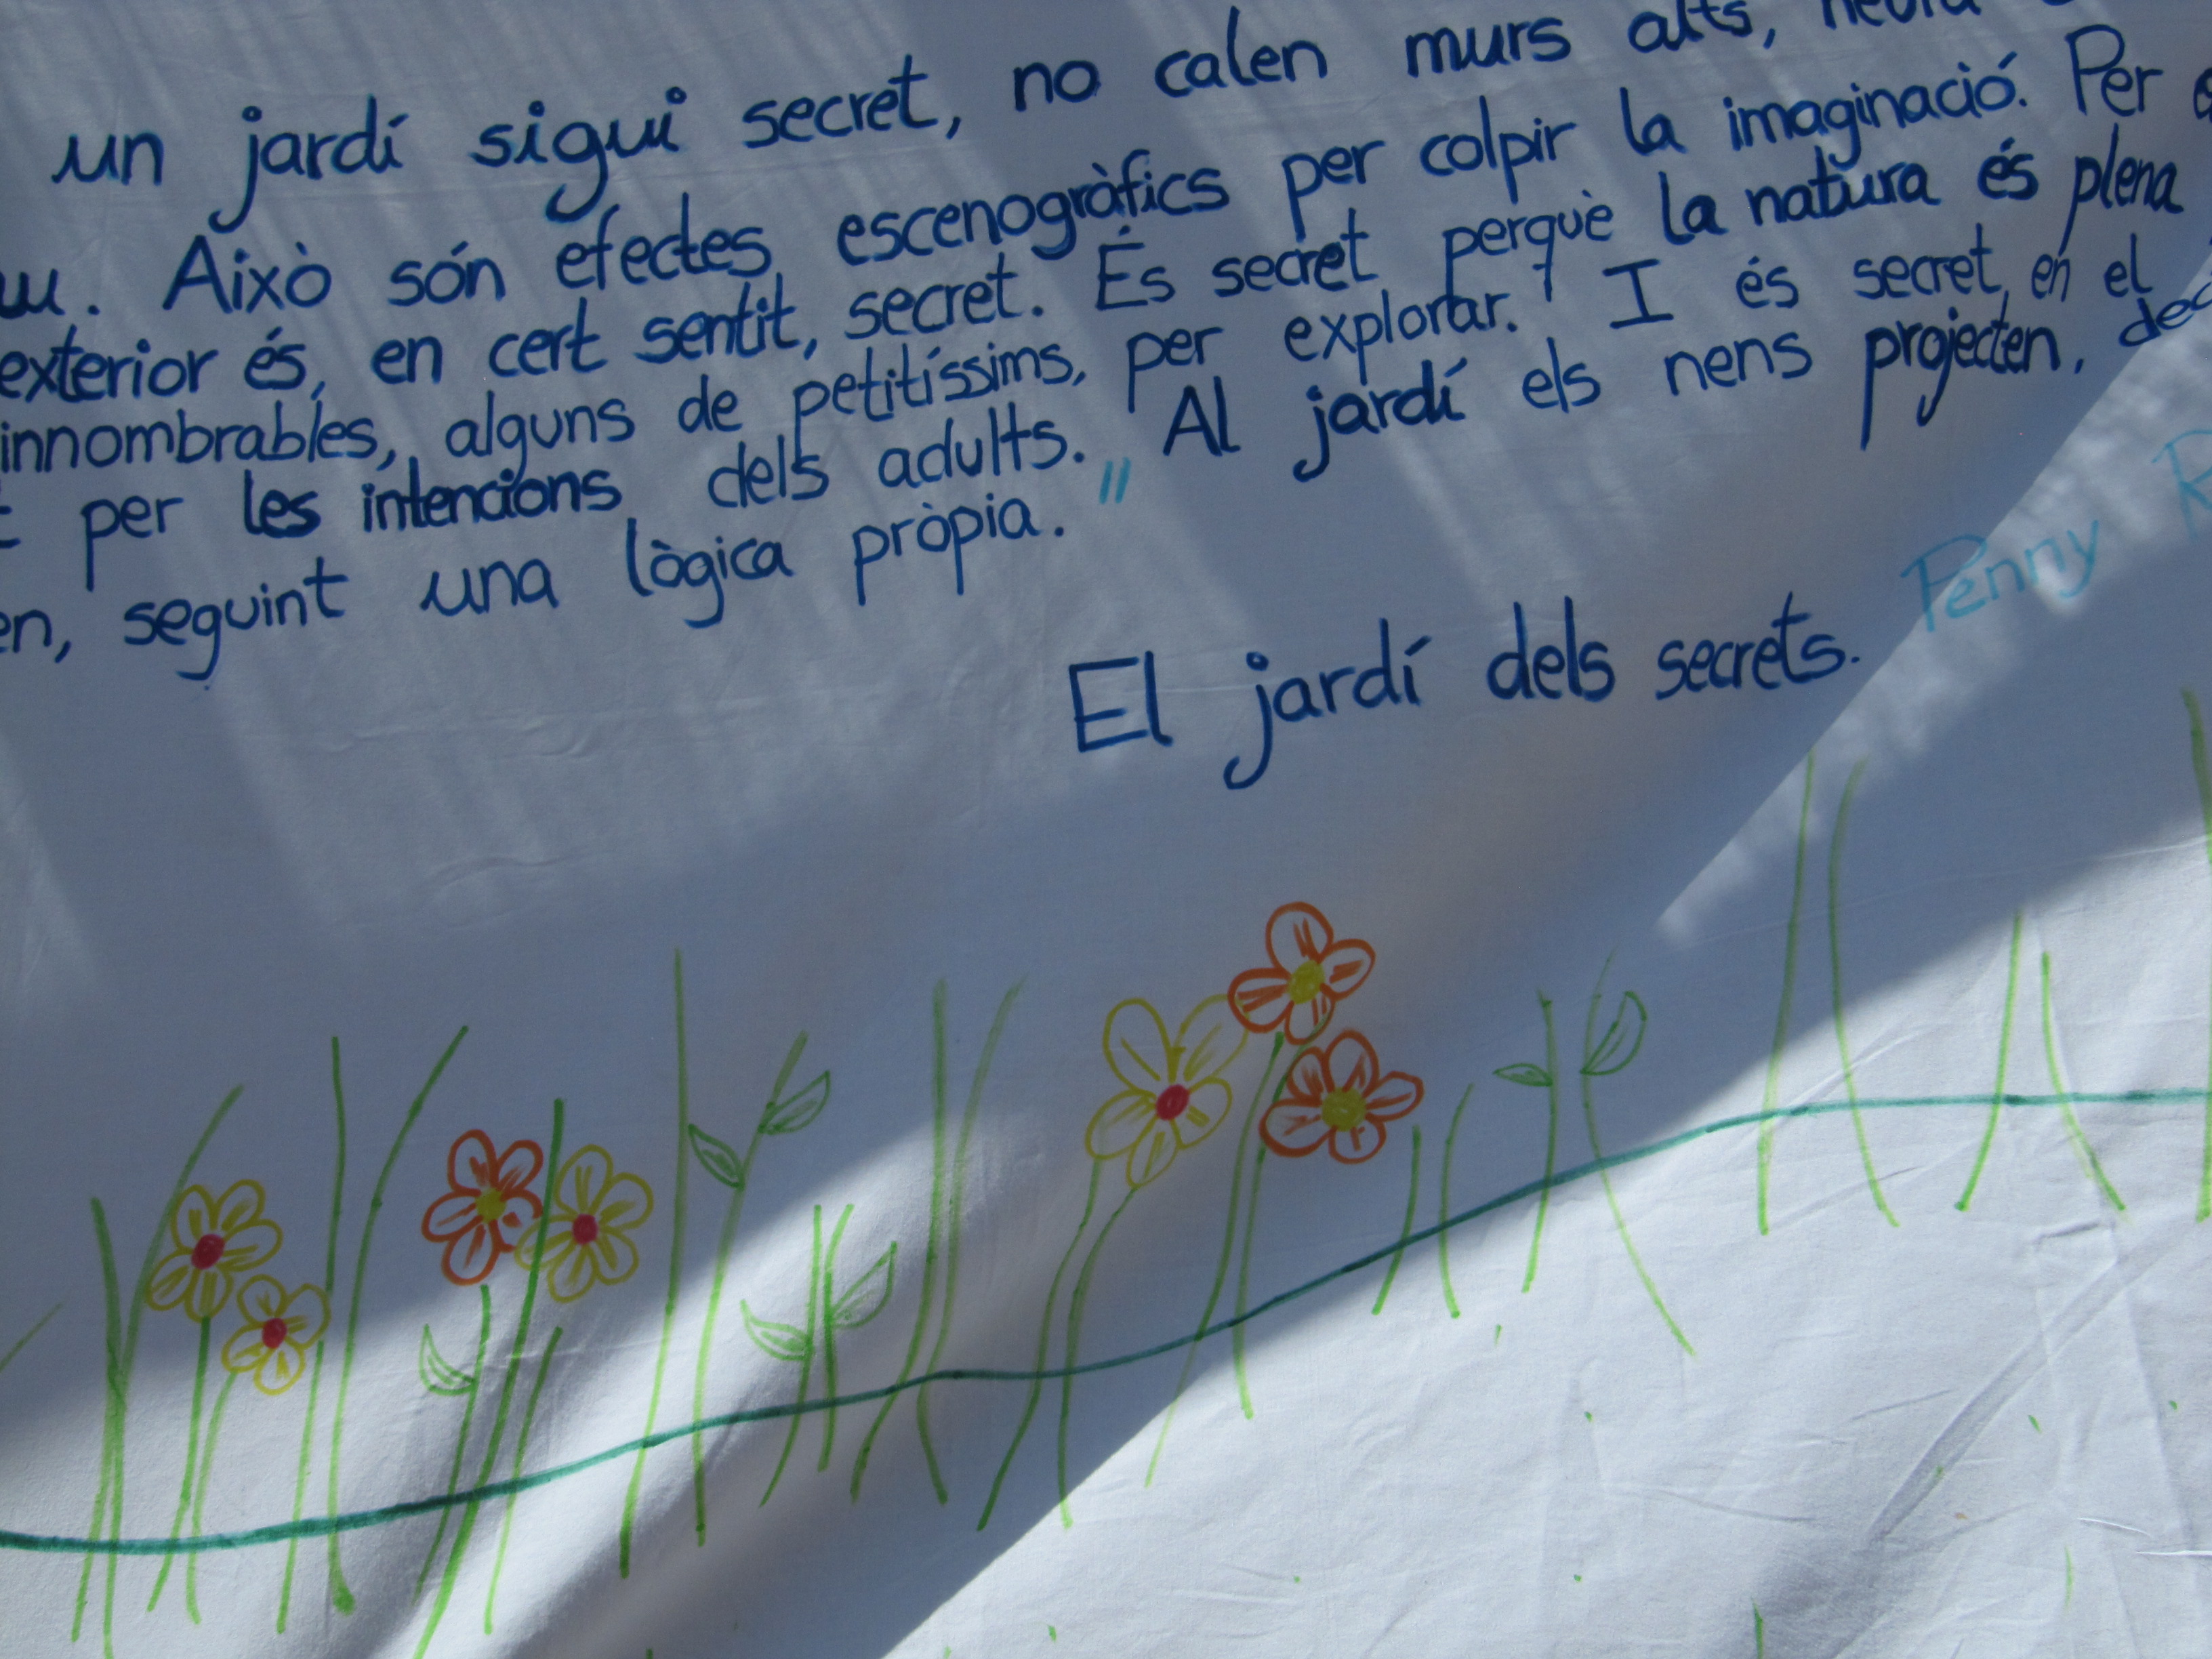 un jardí sigui secret, no calen murs alts,
Això són efectes escenogràfics per colpir la imaginació. Per
exterior és, en cert sentit, secret. És secret perquè la natura és plena
innombrables, alguns de petitíssims, per explorar. I és secret, en el
per les intencions dels adults. Al jardí els nens projecten,
en, seguint una lògica pròpia."
Penny
El jardí dels secrets.